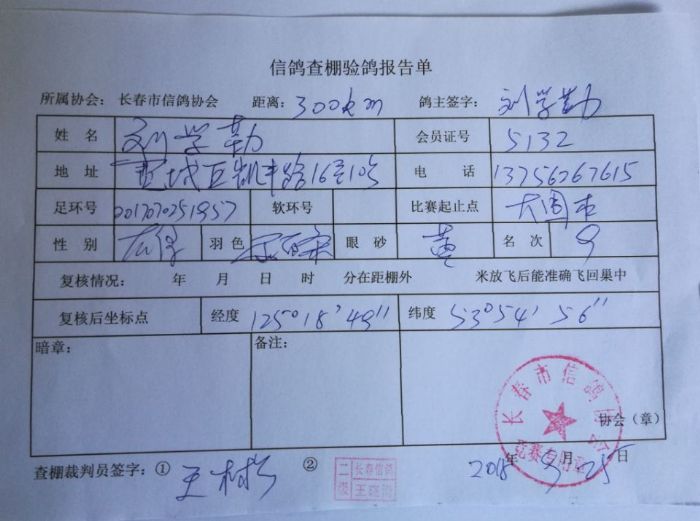 信鸽查棚验鸽报告单
所属协会：长春市信鸽协会 距离：300km 鸽主签字：刘学勤
姓名 刘学勤 会员证号 5132
地址 16号10号 电话 13756267615
足环号 201707025 1957 软环号 比赛起止点 大固本
性别 羽色 眼砂 黄 名次 9
复核情况： 年 月 日 时 分在距棚外 米放飞后能准确飞回巢中
复核后坐标点 经度 125°18'49" 纬度 53°54'56"
暗章： 备注：
长春市信鸽协会
竞赛专用章
协会（章）
查棚裁判员签字：① 王 ② 二级 长春信鸽 王 2018年9月25日